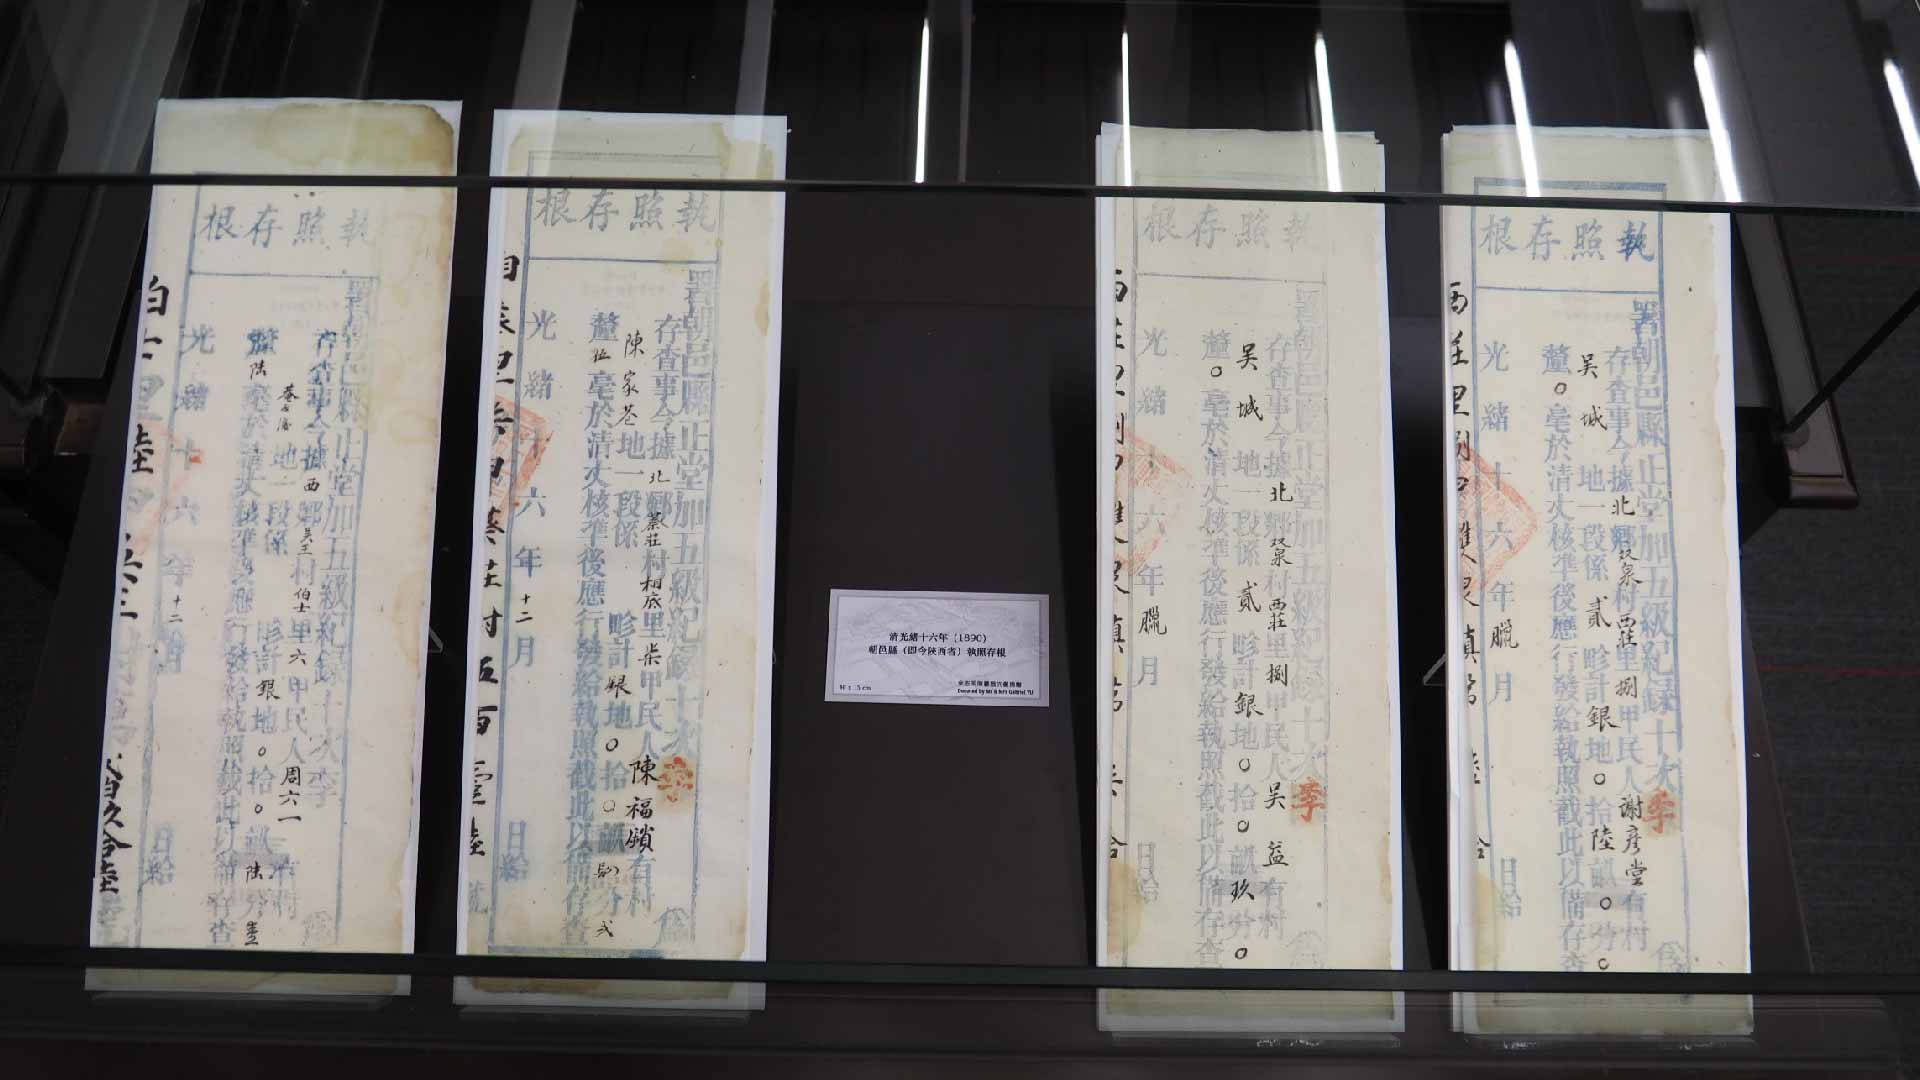 執照存根
署朝邑縣正堂加五級紀錄十次李 為
存查事今據西鄉吴王村伯士里六甲民人周六一有村
地一段係 畛計銀地〇拾〇畝陸分壹
釐陸毫於清丈核準後應行發給執照截此以備存查
光緒十六年十二月 日給
執照存根
署朝邑縣正堂加五級紀錄十次李 為
存查事今據北鄉蔡莊村相底里柒甲民人陳福鎖有村
陳家巷地一段係 畛計銀地〇拾〇畝捌分弍
釐伍毫於清丈核準後應行發給執照截此以備存查
光緒十六年十二月 日給
清光緒十六年（1890）
朝邑縣（即今陝西省）執照存根
執照存根
署朝邑縣正堂加五級紀錄十次李 為
存查事今據北鄉双泉村西莊里捌甲民人吴益有村
吴城地一段係貳畛計銀地〇拾〇畝玖分〇
釐〇毫於清丈核準後應行發給執照截此以備存查
光緒十六年臘月 日給
執照存根
署朝邑縣正堂加五級紀錄十次李 為
存查事今據北鄉双泉村西莊里捌甲民人謝彦堂有村
吴城地一段係貳畛計銀地〇拾陸畝〇分〇
釐〇毫於清丈核準後應行發給執照截此以備存查
光緒十六年臘月 日給